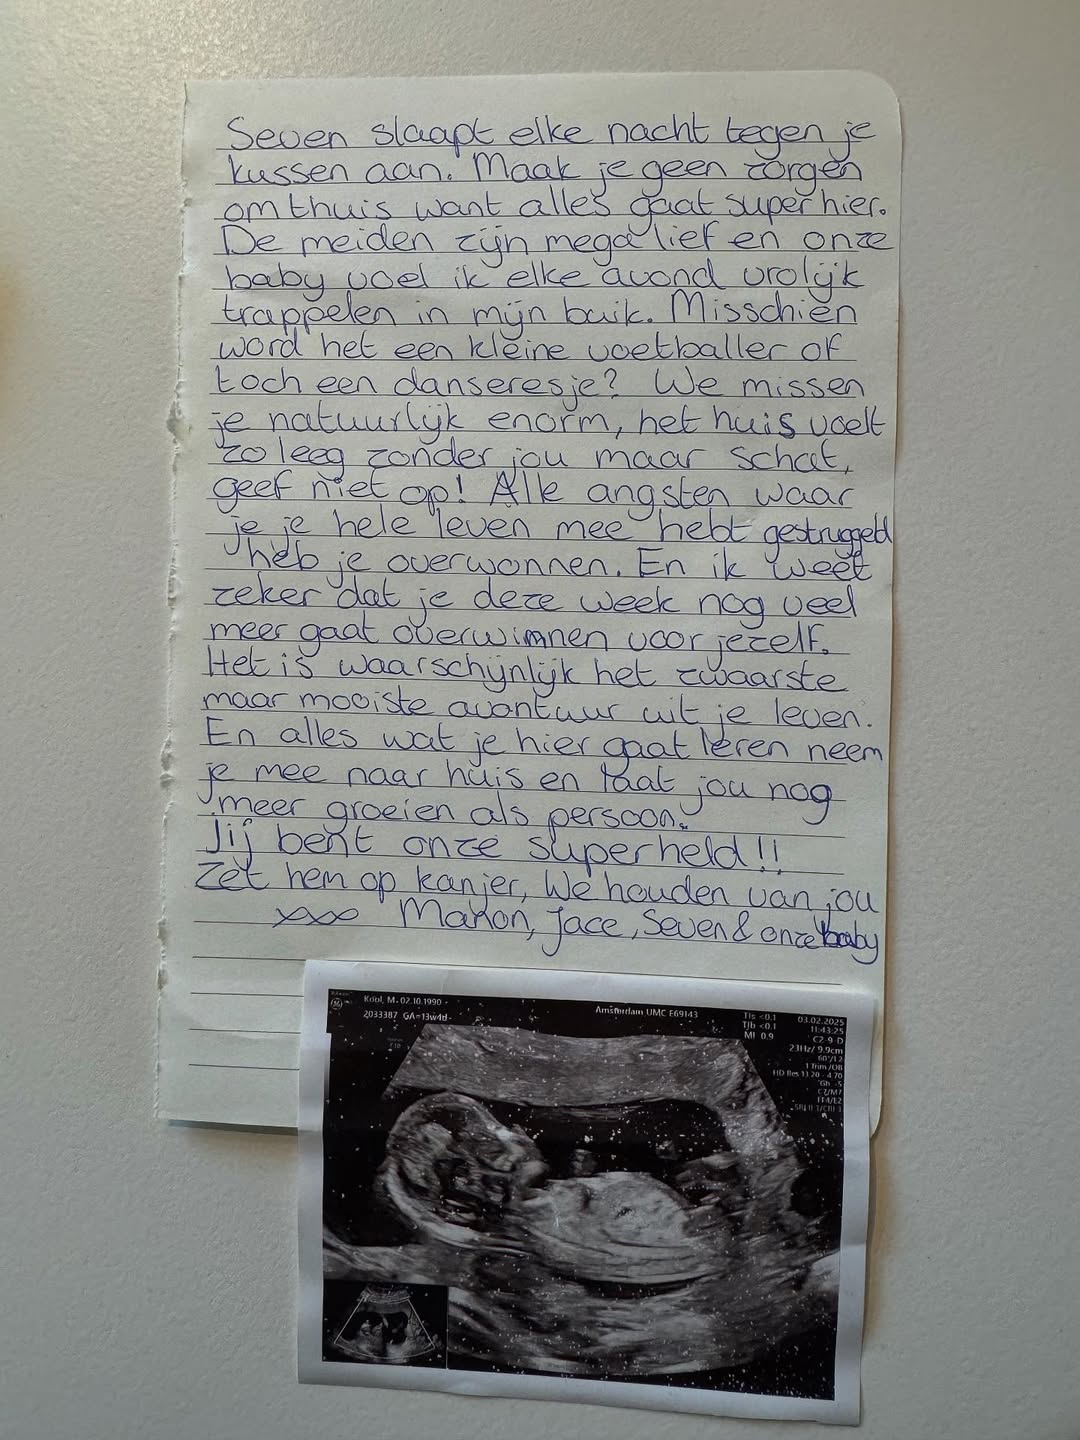 Seven slaapt elke nacht tegen je
kussen aan. Maak je geen zorgen
om thuis want alles gaat super hier.
De meiden zijn mega lief en onze
baby voel ik elke avond vrolijk
trappelen in mijn buik. Misschien
word het een kleine voetballer of
toch een danseresje? We missen
je natuurlijk enorm, het huis voelt
zo leeg zonder jou maar schat,
geef niet op! Alle angsten waar
je je hele leven mee hebt gestruggeld
heb je overwonnen. En ik weet
zeker dat je deze week nog veel
meer gaat overwinnen voor jezelf.
Het is waarschijnlijk het zwaarste
maar mooiste avontuur uit je leven.
En alles wat je hier gaat leren neem
je mee naar huis en laat jou nog
meer groeien als persoon.
Jij bent onze superheld!!
Zet hem op kanjer, We houden van jou
xxx Manon, Jace, Seven & onze baby
Kool, M. 02.10.1990 -
2033387 GA=13w4d -
Amsterdam UMC E69143
TIs <0.1
TIb <0.1
MI 0.9
03.02.2025
11:43:25
C2-9-D
23Hz/ 9.9cm
60°/1.2
1 Trim./OB
HD Res 13.20 - 4.70
Gb -5
C7/M7
FF4/E2
SRI II 3/CRI 3